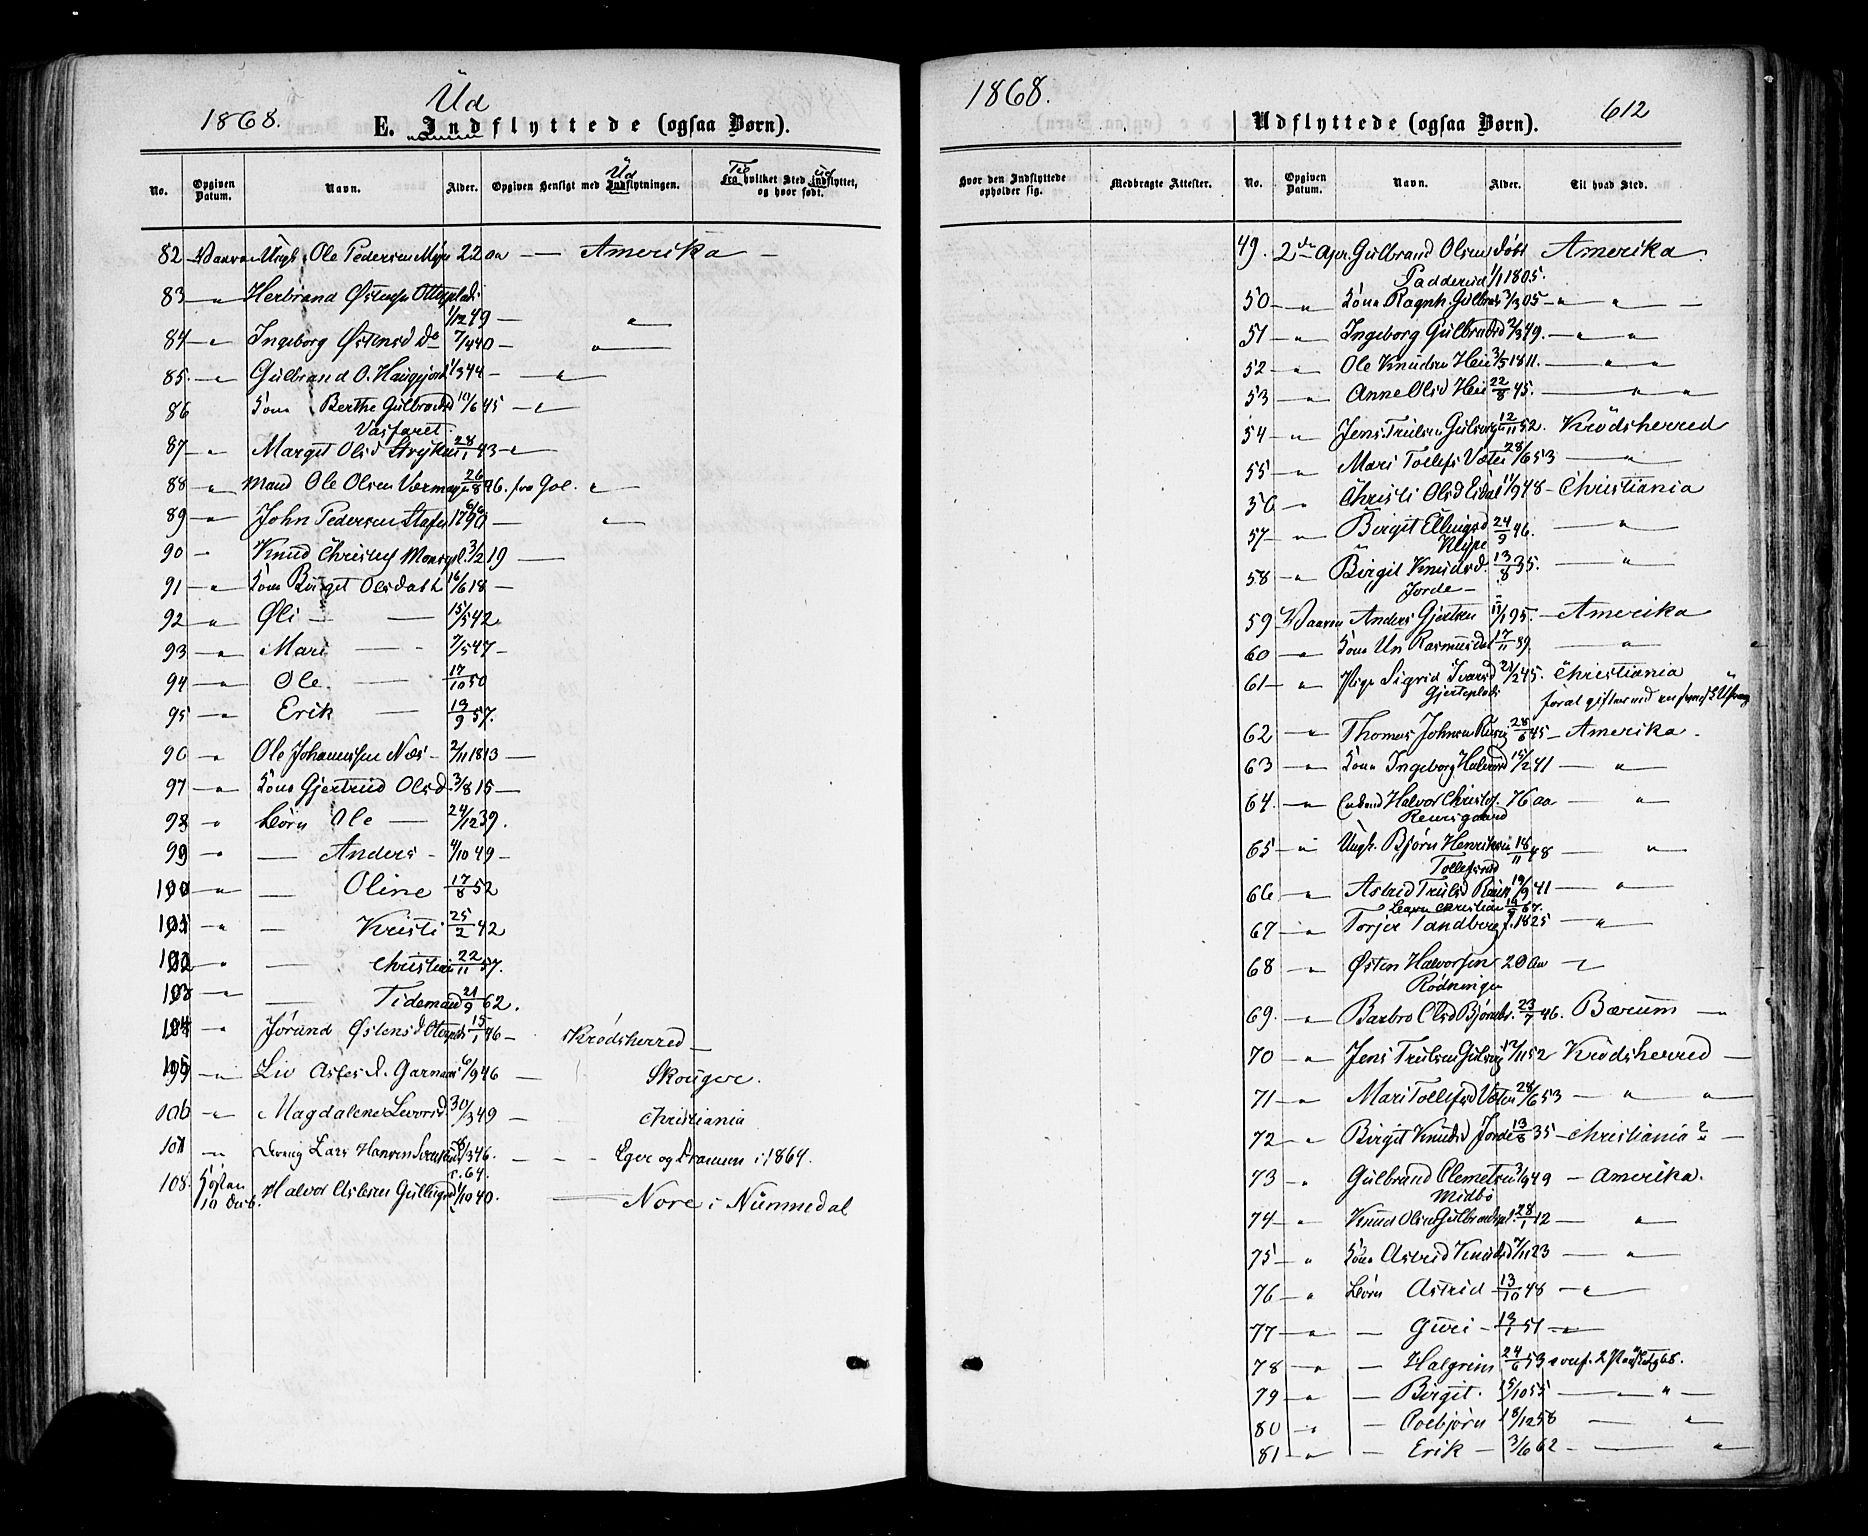 1868.
Ud
E. Indflyttede (ogsaa Børn).
No. Opgiven Datum. Navn. Alder. Opgiven Hensigt med Ud Indflytningen. Til fra hvilket Sted ud indflyttet, og hvor født.
82 Vaaren Ungk. Ole Pedersen Myre 22 aa — Amerika —
83 — " Herbrand Østensen Otterplads
1/12 49 — "
84 — " Ingeborg Østensd do 7/4 40 — "
85. — " Gulbrand O. Haugjord 1/3 44 — "
86 Kone Berthe Gulbrandsd 10/6 45 — "
Vasfaret.
87 — " Margit Olsd Stryken 28/1 43 — "
88 " Mand Ole Olsen 26/8 46. fra Gol. "
89 — " John Pedersen 1790 — "
90 " Knud Christens Monspl. 3/2 19 —
91 — " Kone Birgit Olsdatt 16/6 18 —
92 — " Øli — — 15/5 42
93 — " Mari — — 7/5 47 —
94 — " Ole. — 17/10 50
95 — " Erik — 19/9 57.
96 " Ole Johannessen Næs — 2/11 1813 —
97 — " Kone Gjertrud Olsd. 3/8 15 —
98 " Børn Ole — 24/12 39.
99 — " — Anders — 4/10 49 —
100 — " — Oline 17/8 52
101 — " — Kristi 25/2 42
102 — " — Christian 22/11 57.
103 — " — Tidemand 21/9 62.
104 " Jørund Østensd 15/1 46 — Krødsherred —
105 — " Liv Aslesd. Garnaas 6/9 46 — Skouger.
106 — " Magdalene Levorsd 30/3 49 — Christiania
107 — " Lars Hansen 8/3 46. — Eger og Dramen i 1864.
f. 64.
108. Høsten Halvor Aslesen 1/10 40. — Nore i Nummedal
10 Decb.
1868.
612
Udflyttede (ogsaa Børn).
Hvor den Indflyttede opholder sig. Medbragte Attester. No. Opgiven Datum. Navn. Alder. Til hvad Sted.
49. 2den Apr. Gulbrand Olsen døbt Amerika
Padderud 1/1 1805.
50 — " Kone Ragnh. Gulbrds 3/3 05 — " " —
51 — " Ingeborg Gulbrandsd 2/3 49. — " "
52 " Ole Knudsen Hei 3/5 1811. — " "
53 — " Anne Olsd Hei 22/8 45. — " "
54 — " Jens Trulsen Gulsvig 12/11 52. Krødsherred
55 — " Mari Tollefs Væten 28/6 53 — "
56 " Christi Olsd Eidal 11/9 48 — Christiania
57 — " Birgit Ellingsd 24/9 46. — "
Klype
58 — " Birgit Knudsd. 13/8 35. — "
Jorde —
59 Vaaren Anders Gjertsen 11/1 95. — Amerika
60 — " Kone Un Rasmusdat 17/11 89. — "
61 — " Pige Sigrid Ivarsd 21/2 45. Christiania
Gjerteplads
62 — " Thomas Johnsen 28/6 45 — Amerika —
63 — " Kone Ingeborg Halvorsd 15/2 41 — "
64. — " Halvor Christof. 76 aa — "
Reiersgaard
65 — " Ungk. Bjørn Henriksen 18/11 48 — "
Tollefsrud
66 " Astrid Trulsd 19/9 41 — "
Barn Christian 14/9 67.
67 — " Torjer Sandberg f. 1825 — "
68 — " Østen Halvorsen 20 aa — "
Rødningen
69. — " Barbro Olsd 23/7 46. Bærum — "
70 — " Jens Trulsen Gulsvig 12/11 52 Krødsherred —
71 — " Mari Tollefsd Væten 28/6 53 — " "
72 — " Birgit Knudsd Jorde 13/8 35 — Christiania " —
73 — " Gulbrand Clemetsen 3/9 49 — Amerika.
Midbø
74 — " Knud Olsen Gulbrandspl. 28/1 12 — "
75 — " Kone Astrid Knudsd 7/11 23 — "
76 — " Børn Astrid 13/10 48 — "
77 — " — Guri — 13/1 51 — "
78 — " — Halgrim 24/6 53 conf.
79 — " — Birgit. 15/10 55 — " —
80 — " — Colbjørn 18/12 58 — "
81 — " — Erik — 3/6 62 — "